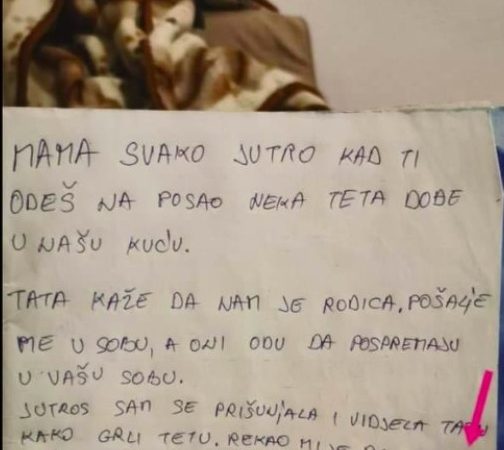 MAMA SVAKO JUTRO KAD TI
ODEŠ NA POSAO NEKA TETA DOĐE
U NAŠU KUĆU.
TATA KAŽE DA NAM JE RODICA. POŠALJE
ME U SOBU, A ONI ODU DA POSPREMAJU
U VAŠU SOBU.
JUTROS SAM SE PRIŠUNJALA I VIDJELA TATU
KAKO GRLI TETU. REKAO MI JE